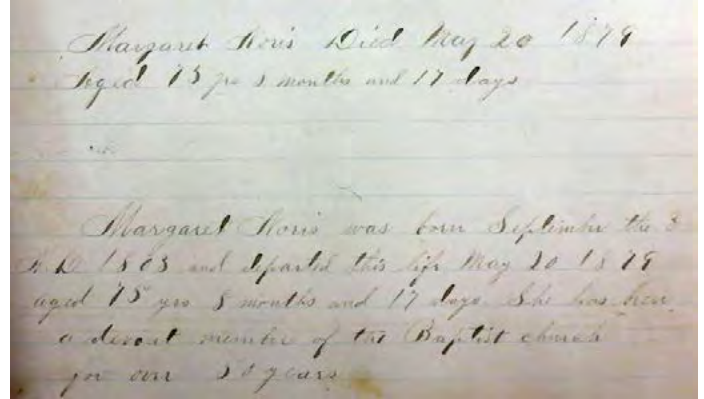 Margaret Horis Died May 20 1879
Aged 75 yrs 8 months and 17 days
Margaret Horis was born September the 3
A.D 1803 and departed this life May 20 1879
aged 75 yrs 8 months and 17 days. She has been
a devout member of the Baptist church
for over 50 years